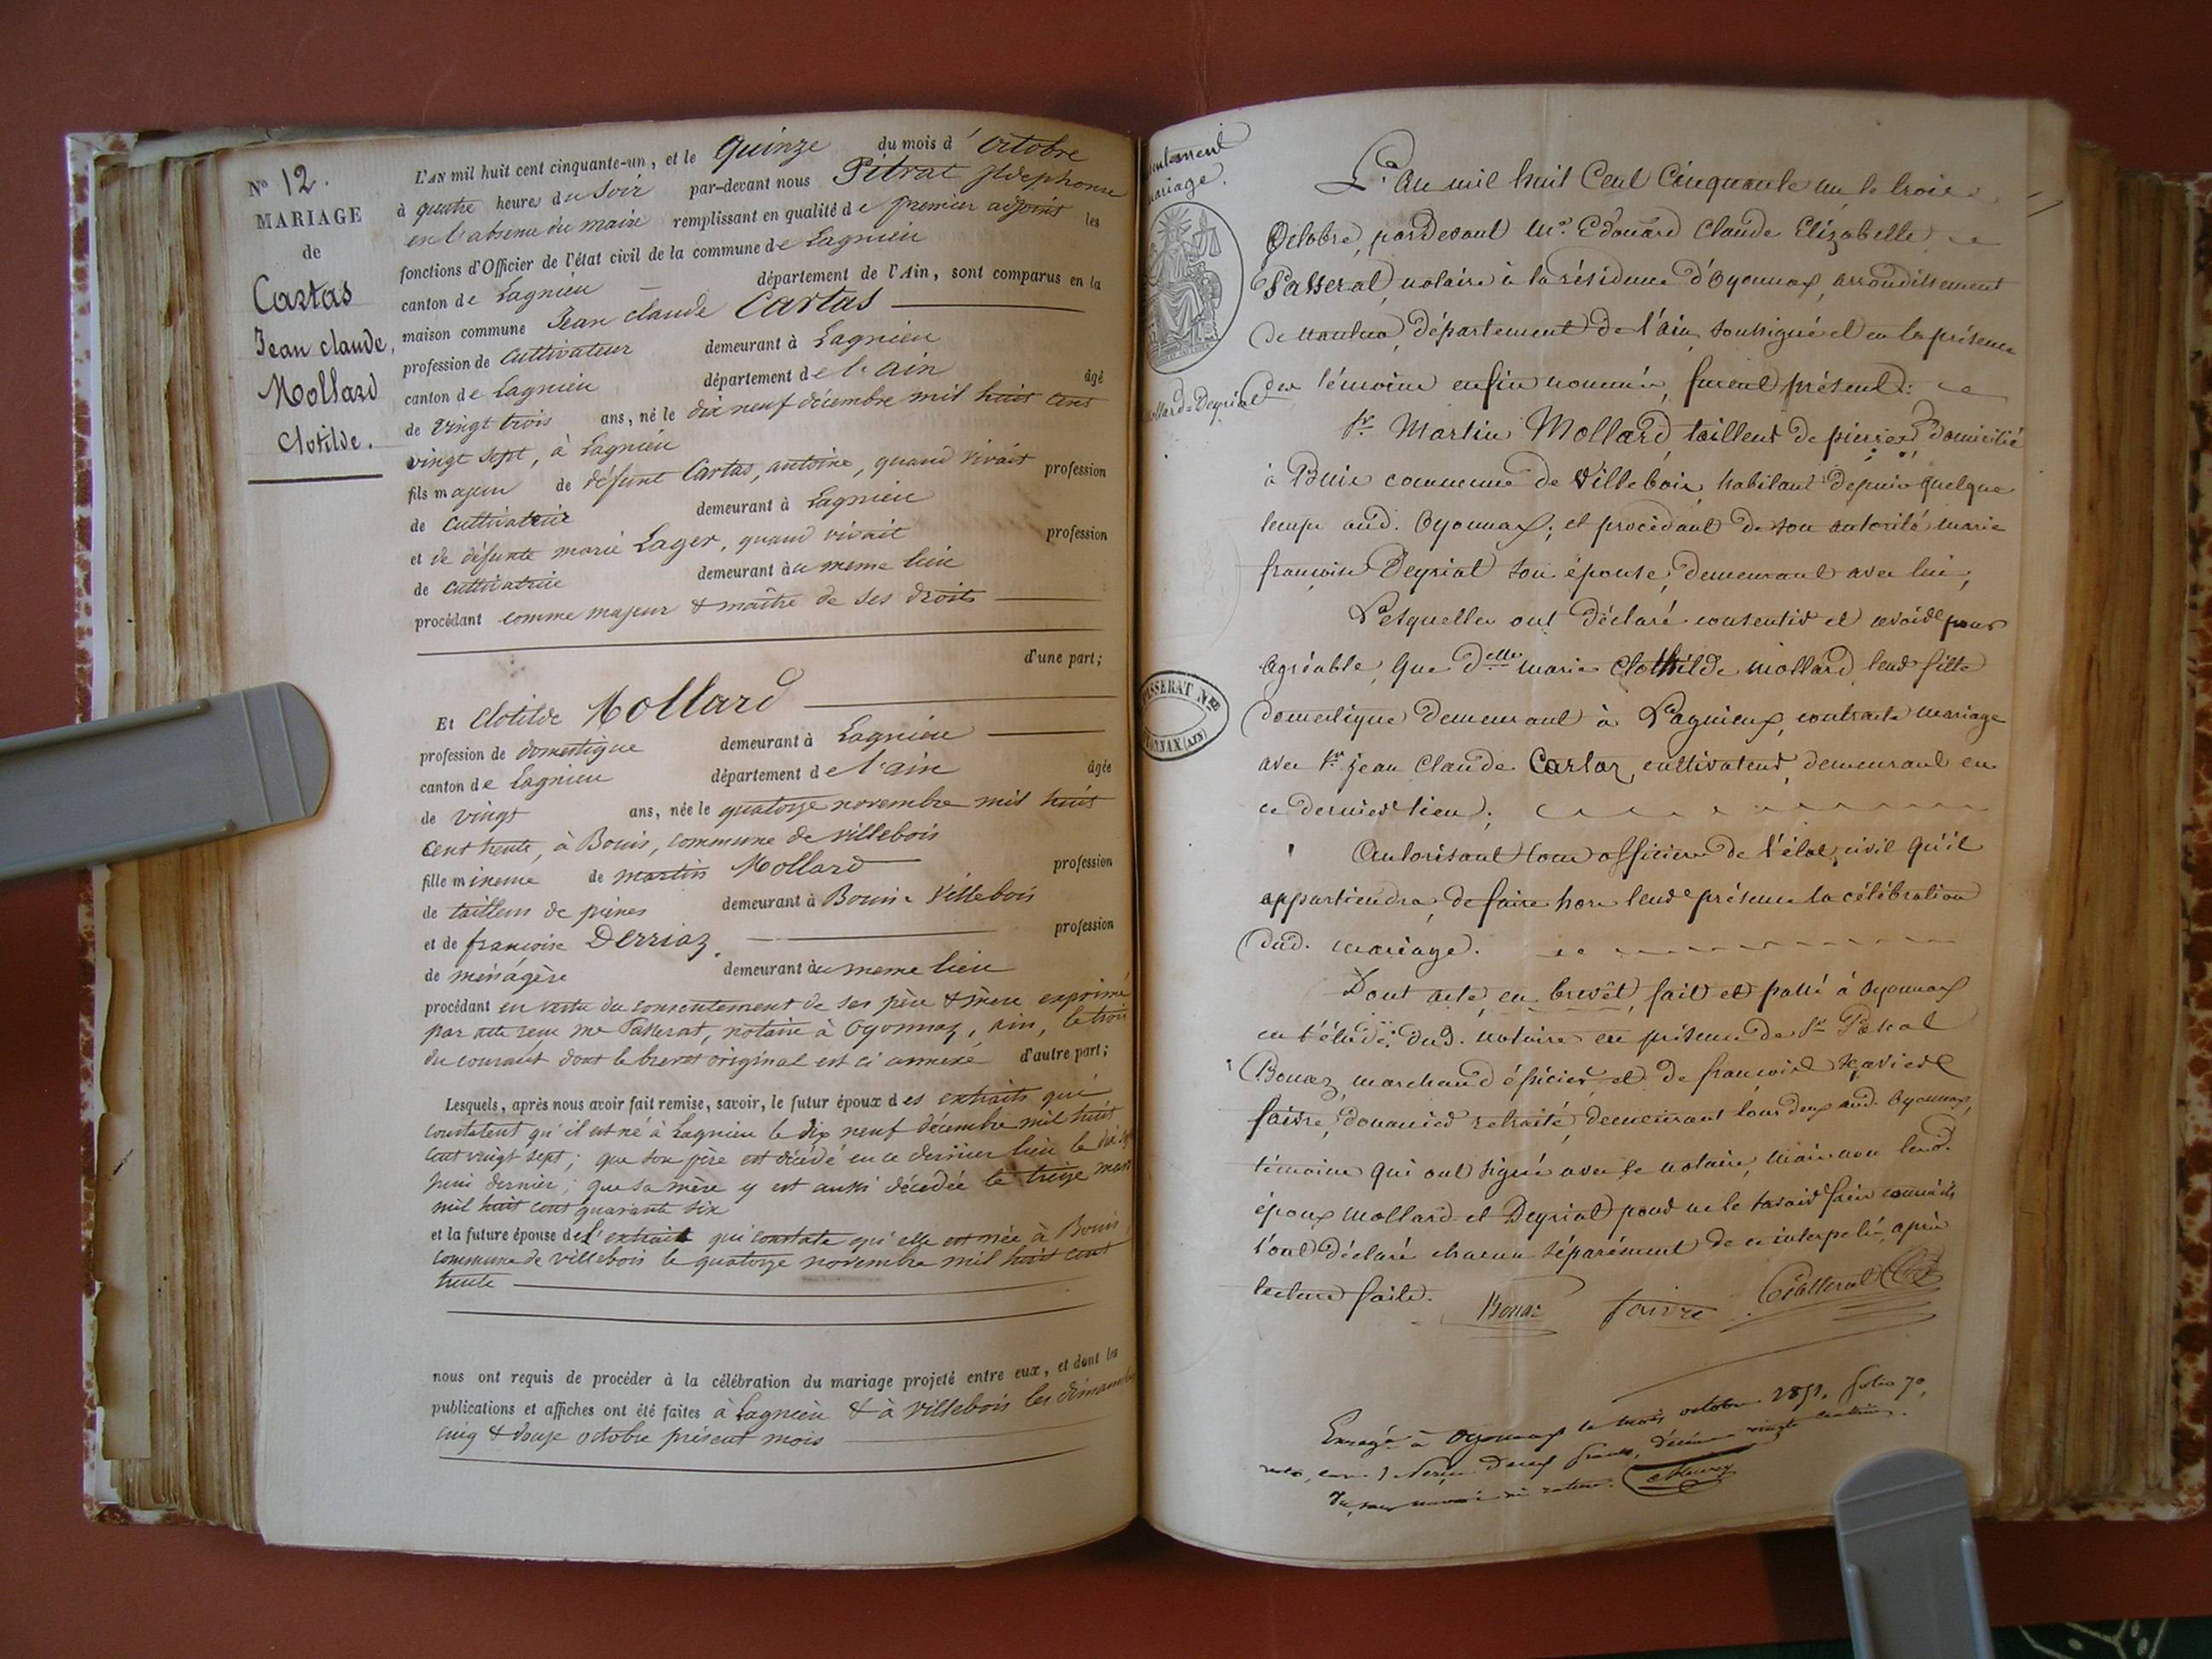 N° 12.
MARIAGE
de
Cartas
Jean claude,
Mollard
Clotilde.
L'AN mil huit cent cinquante-un, et le Quinze du mois d'Octobre
à quatre heures du Soir par-devant nous Pitrat Ildephonse
en l'absence du maire remplissant en qualité de premier adjoint les
fonctions d'Officier de l'état civil de la commune de Lagnieu
canton de Lagnieu département de l'Ain, sont comparus en la
maison commune Jean claude Cartas
profession de Cultivateur demeurant à Lagnieu
canton de Lagnieu département de l'ain âgé
de vingt trois ans, né le dix neuf décembre mil huit cent
vingt sept, à Lagnieu
fils majeur de défunt Cartas, antoine, quand vivait profession
de Cultivateur demeurant à Lagnieu
et de défunte marie Lager, quand vivait profession
de cultivatrice demeurant au meme lieu
procédant comme majeur & maître de ses droits
d'une part;
Et Clotilde Mollard
profession de domestique demeurant à Lagnieu
canton de Lagnieu département de l'ain âgée
de vingt ans, née le quatorze novembre mil huit
cent trente, à Bouis, commune de villebois
fille mineure de martin Mollard profession
de tailleur de pierres demeurant à Bouis Villebois
et de francoise Derriaz. profession
de ménagère demeurant au meme lieu
procédant en vertu du consentement de ses père & mère exprimé
par acte reçu me Passerat, notaire à Oyonnax, ain, le trois
du courant dont le brevet original est ci annexé d'autre part;
Lesquels, après nous avoir fait remise, savoir, le futur époux des extraits qui
constatent qu'il est né à Lagnieu le dix neuf décembre mil huit
cent vingt sept; que son père est décédé en ce dernier lieu le dix sept
juin dernier; que sa mère y est aussi décédée le treize mars
mil huit cent quarante six
et la future épouse de l'extrait qui constate qu'elle est née à Bouis
commune de villebois le quatorze novembre mil huit cent
trente
nous ont requis de procéder à la célébration du mariage projeté entre eux, et dont les
publications et affiches ont été faites à Lagnieu & à villebois les dimanches
cinq & douze octobre présent mois
L'an mil huit Cent Cinquante un le trois
Octobre, pardevant Me. Edouard Claude Elizabette
Passerat, notaire à la résidence d'Oyonnax, arrondissement
de Nantua, département de l'ain, soussigné et en la présence
des témoins enfin nommés, furent présents:
Mollard = Deyriat
Sr. Martin Mollard, tailleur de pierres, domicilié
à Buis commune de Villebois, habitant depuis quelque
temps aud. Oyonnax; et procédant de son autorité marie
françoise Deyriat son épouse, demeurant avec lui;
Lesquels ont déclaré consentir et avoir pour
agréable, que Delle marie Clothilde mollard, leur fille
domestique demeurant à Lagnieux, contracte mariage
avec Sr. jean Claude Cartaz, cultivateur, demeurant en
ce dernier lieu;
Autorisant tous officiers de l'état civil qu'il
appartiendra, de faire hors leur présence la célébration
dud. mariage.
Dont acte, en brevêt, fait et passé à Oyonnax
en l'étude dud. notaire en présence de Sr. Pascal
Bonaz, marchand épicier, et de francois Xavier
faivre, douanier retraité, demeurant tous deux aud. Oyonnax,
témoins qui ont signé avec le notaire, mais non lesd.
époux Mollard et Deyriat pour ne le savoir faire comme ils
l'ont déclaré chacun séparément de ce interpelé, après
lecture faite.
Bonaz faivre Passerat
Enregé à Oyonnax le trois octobre 1851. folio 70,
PASSERAT NRE
OYONNAX (AIN)